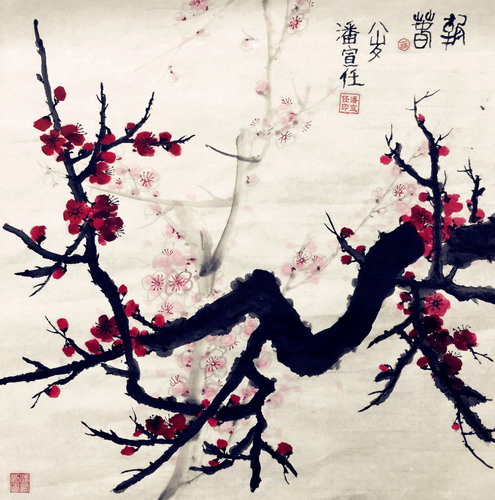 報春
八岁
潘宣任
潘宣
任印